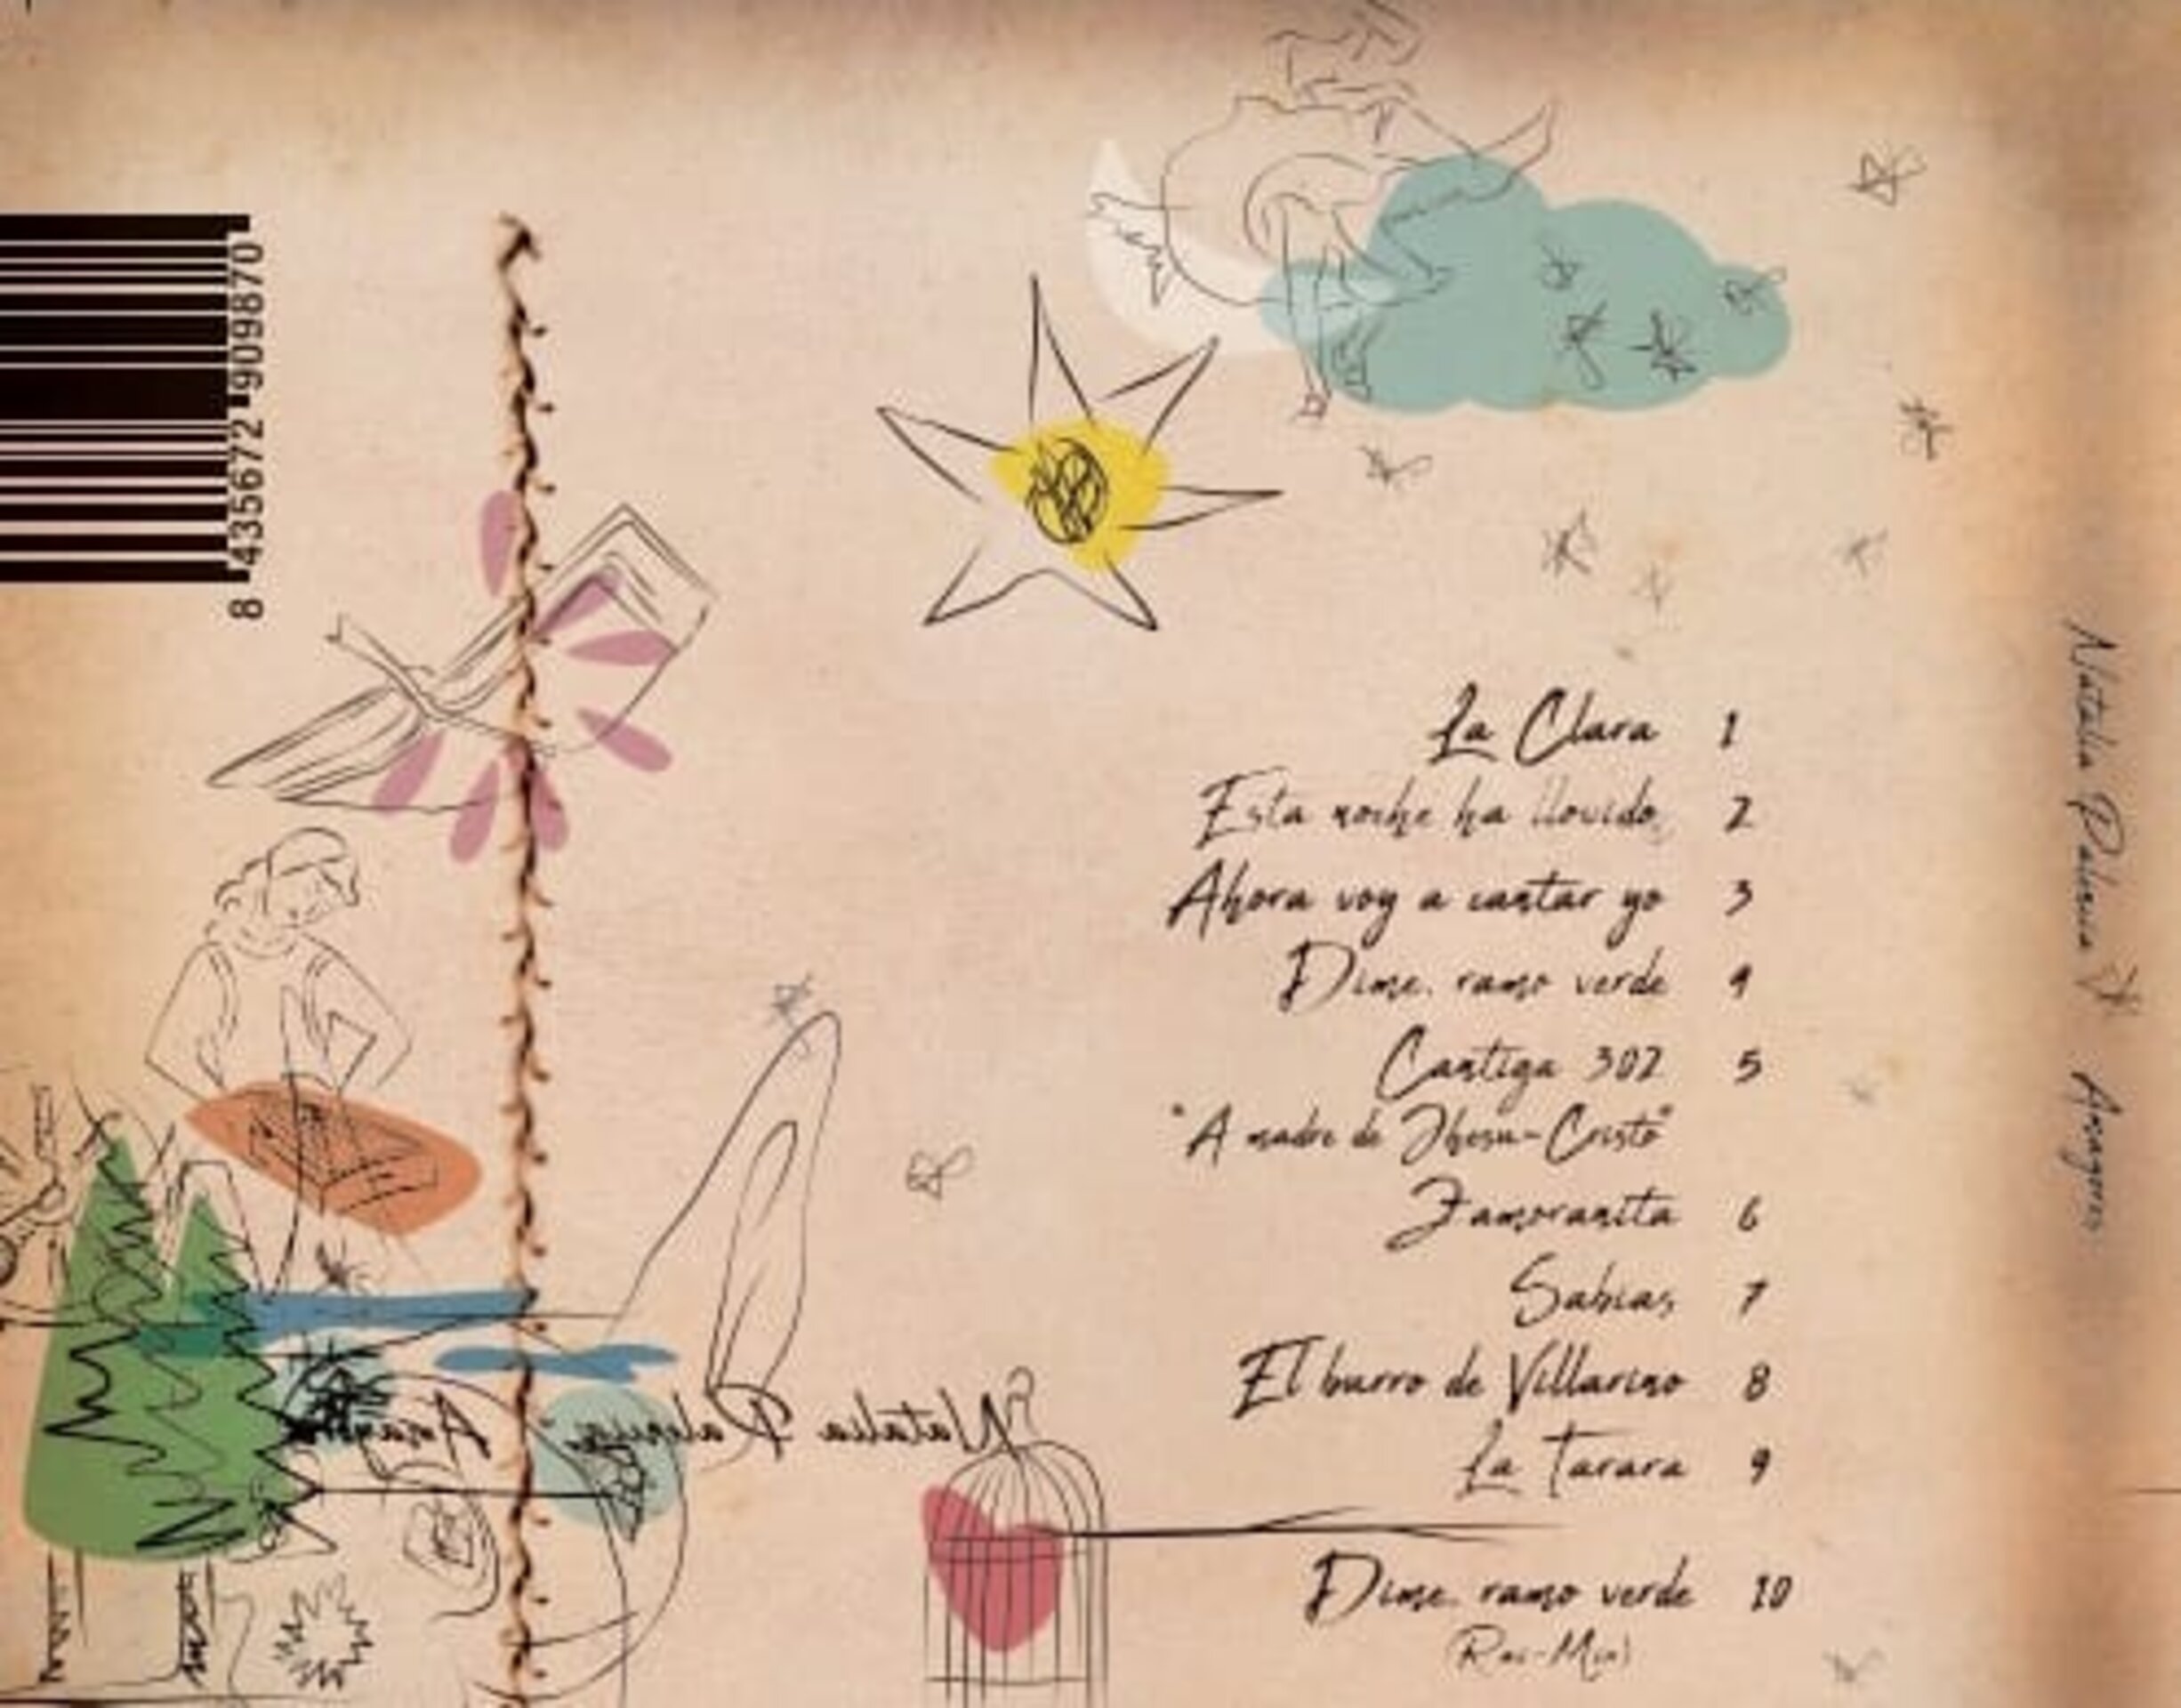 8 435672 909870
La Clara 1
Esta noche ha llovido 2
Ahora voy a cantar yo 3
Dime, ramo verde 4
Cantiga 302 5
"A madre de Jhesu-Cristo"
Zamoranita 6
Sabias 7
El burro de Villarino 8
La Tarara 9
Dime, ramo verde 10
Natalia Palencia
Natalia Palencia